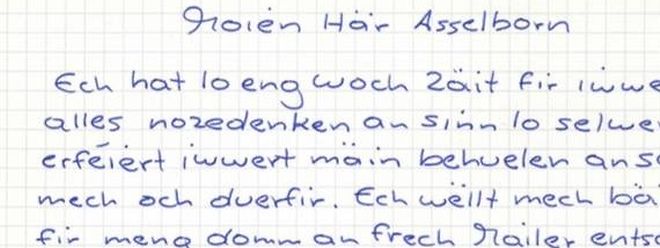 Moien Här Asselborn
Ech hat lo eng Woch Zäit fir iwwe
alles nozedenken an sinn lo selwe
erféiert iwwert mäin behuelen an s
mech och duerfir. Ech wëllt mech bä
fir meng domm an frech Mailer ents